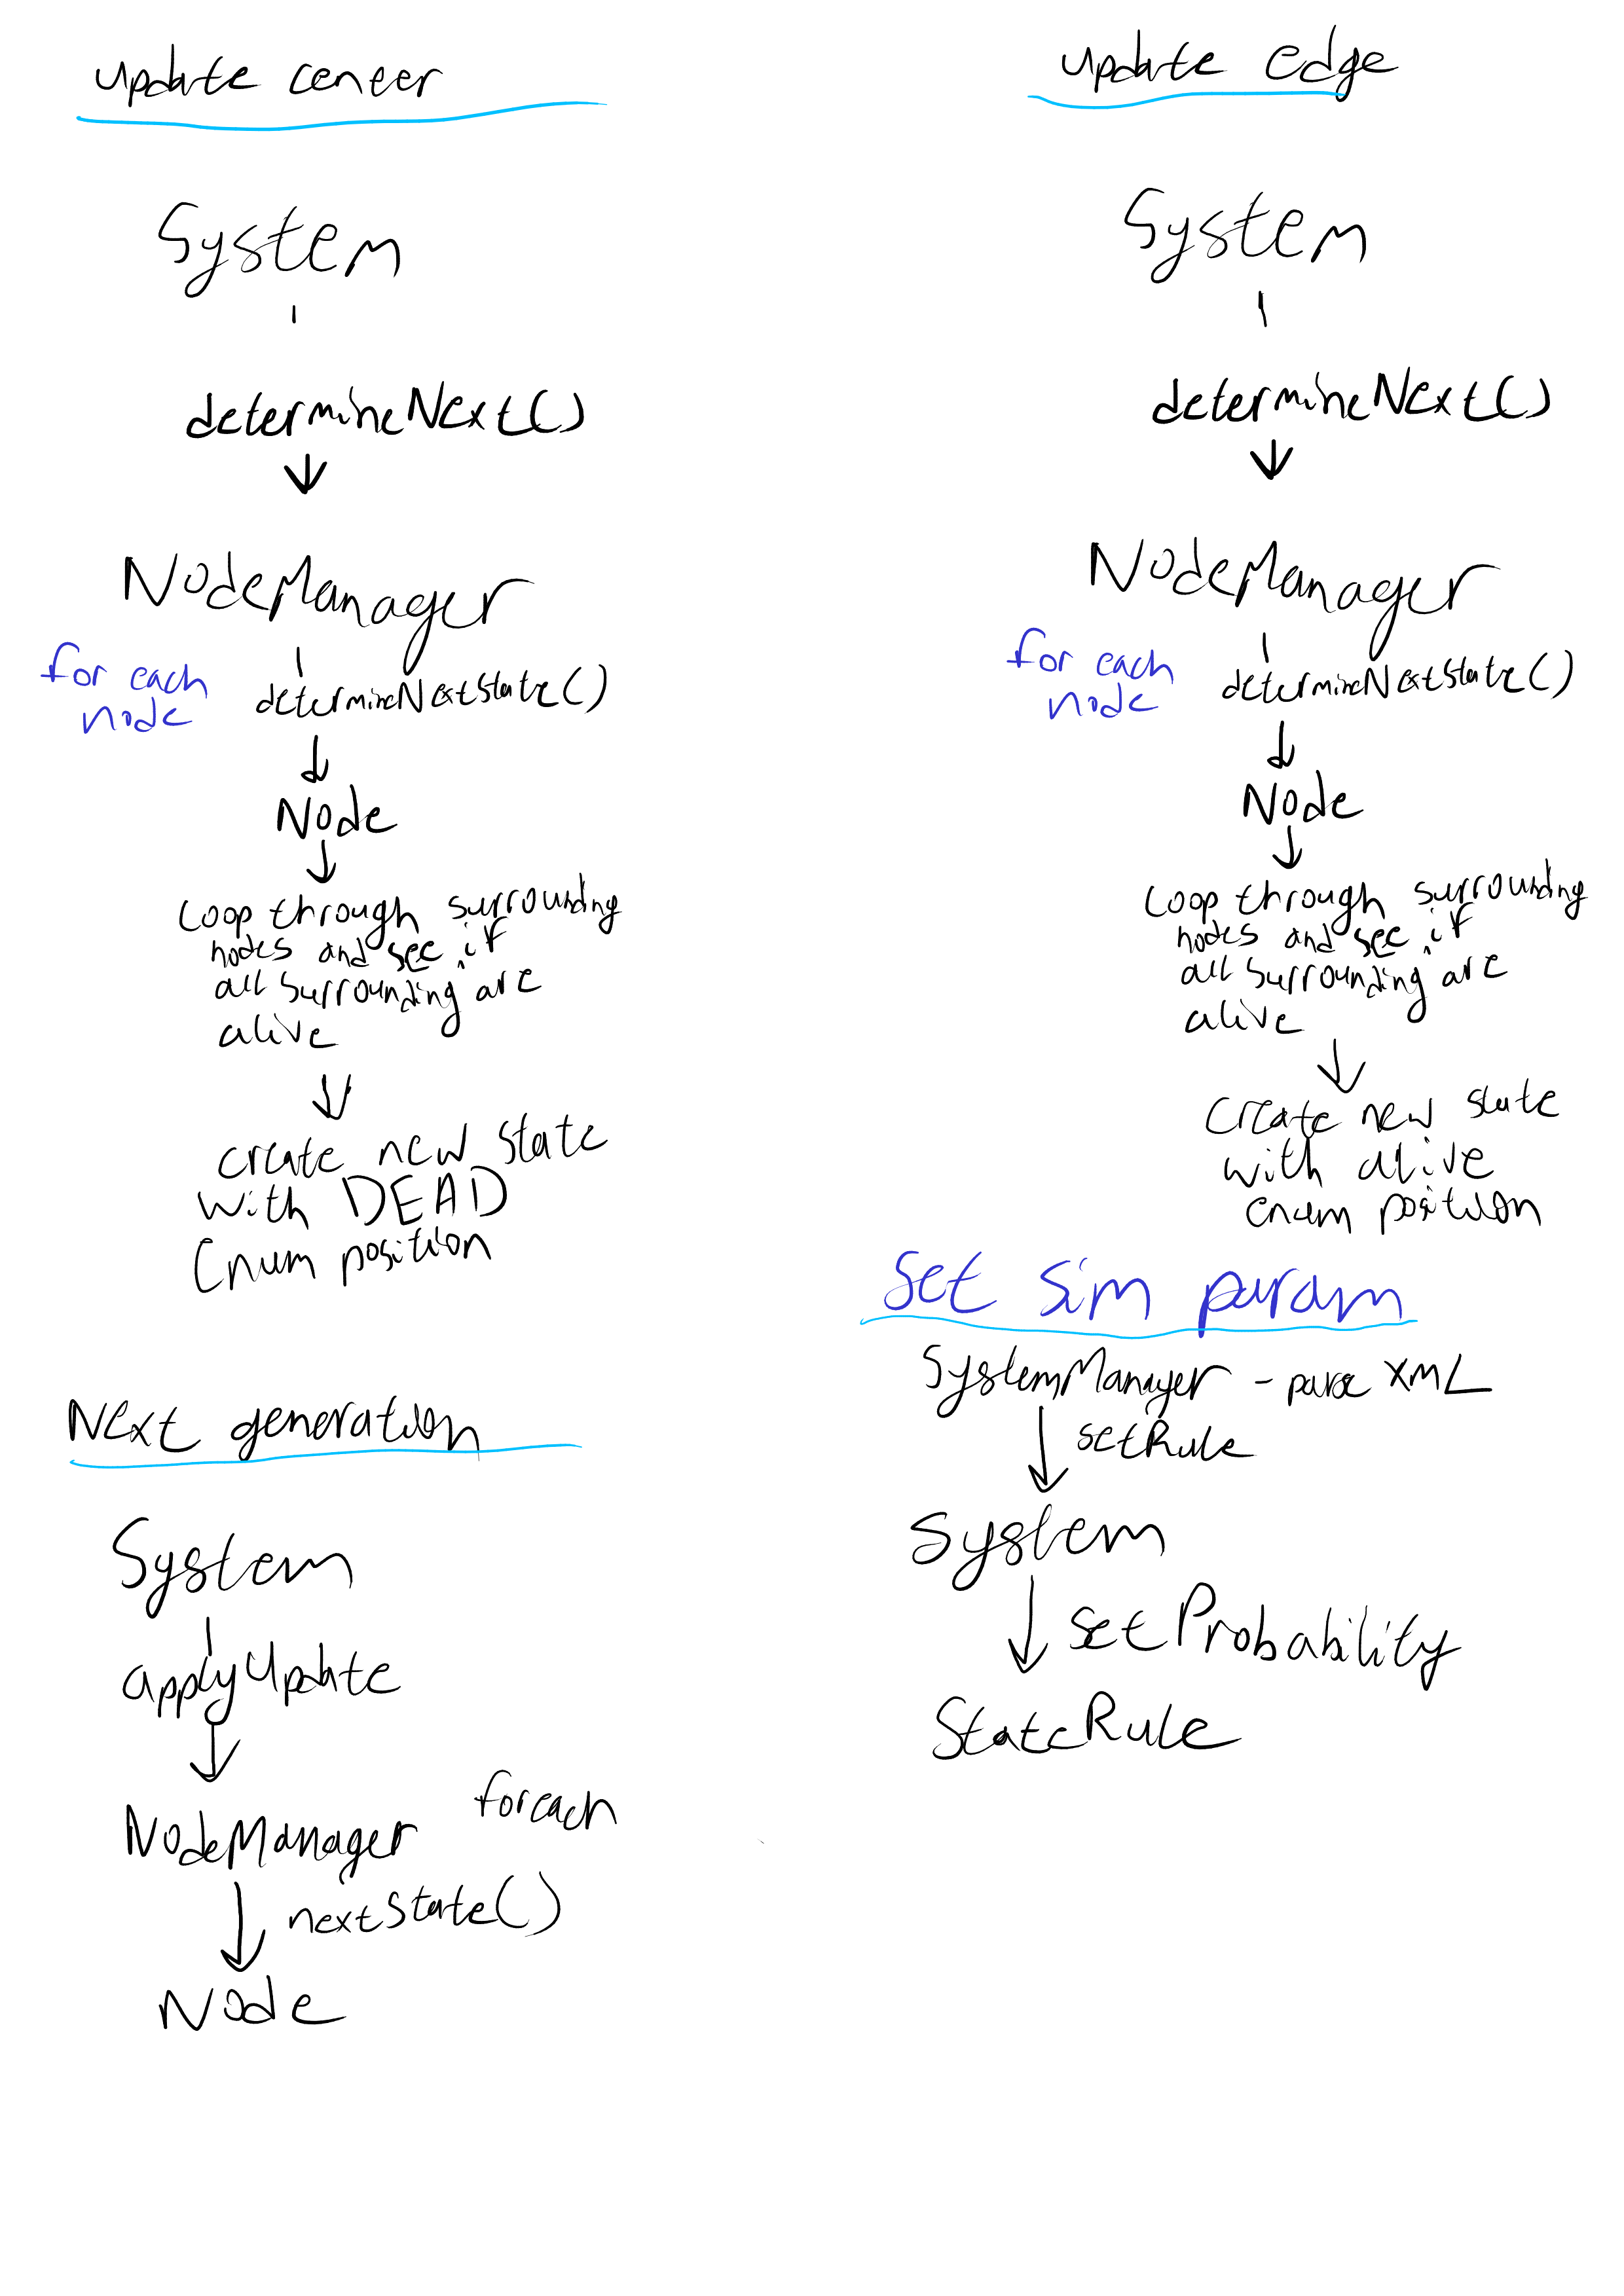 update center
System
determineNext()
NodeManager
for each
node
determineNextState()
Node
Loop through surrounding
nodes and see if
all surrounding are
alive
create new state
with DEAD
Enum position
Next generation
System
applyUpdate
NodeManager foreach
nextState()
Node
update edge
System
determineNext()
NodeManager
for each
node
determineNextState()
Node
Loop through surrounding
nodes and see if
all surrounding are
alive
Create new state
with alive
enum position
Set sim param
SystemManager - parse XML
setRule
System
setProbability
StateRule